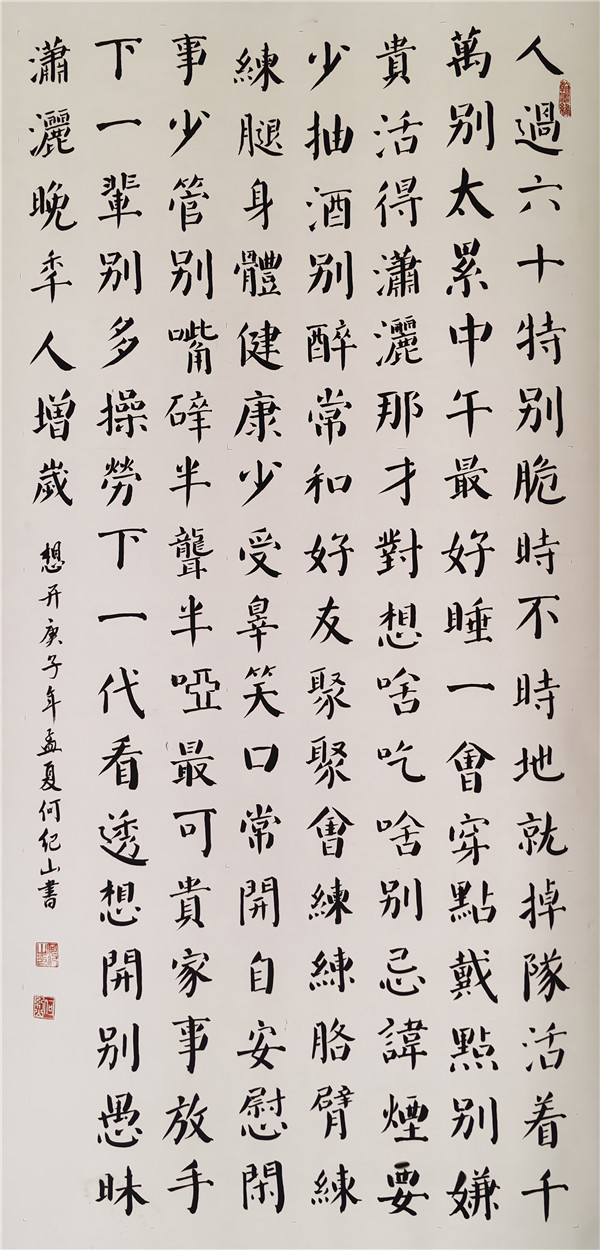 人過六十特别脆時不時地就掉隊活着千
萬别太累中午最好睡一會穿點戴點别嫌
貴活得瀟灑那才對想啥吃啥别忌諱煙要
少抽酒别醉常和好友聚聚會練練胳臂練
練腿身體健康少受辠笑口常開自安慰閑
事少管别嘴碎半聾半啞最可貴家事放手
下一輩别多操勞下一代看透想開别愚昧
瀟灑晚秊人增歲
想开庚子年孟夏何纪山書